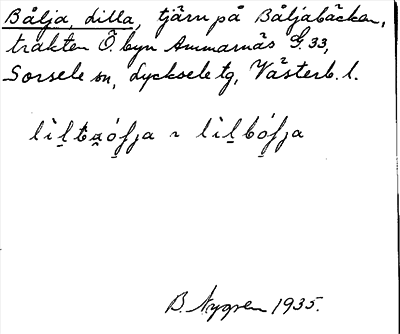 Bålja, dilla, tjärn på Båljabäcken,
trakten Ö. byn Ammarnäs G. 33,
Sorsele sn, Lycksele tg, Västerb. l.
B. Nygren 1935.